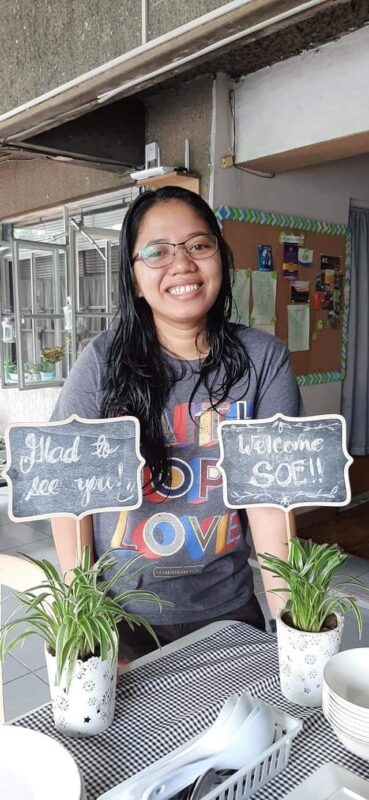 Glad to
see you!
Welcome
SOE!!
LOVE